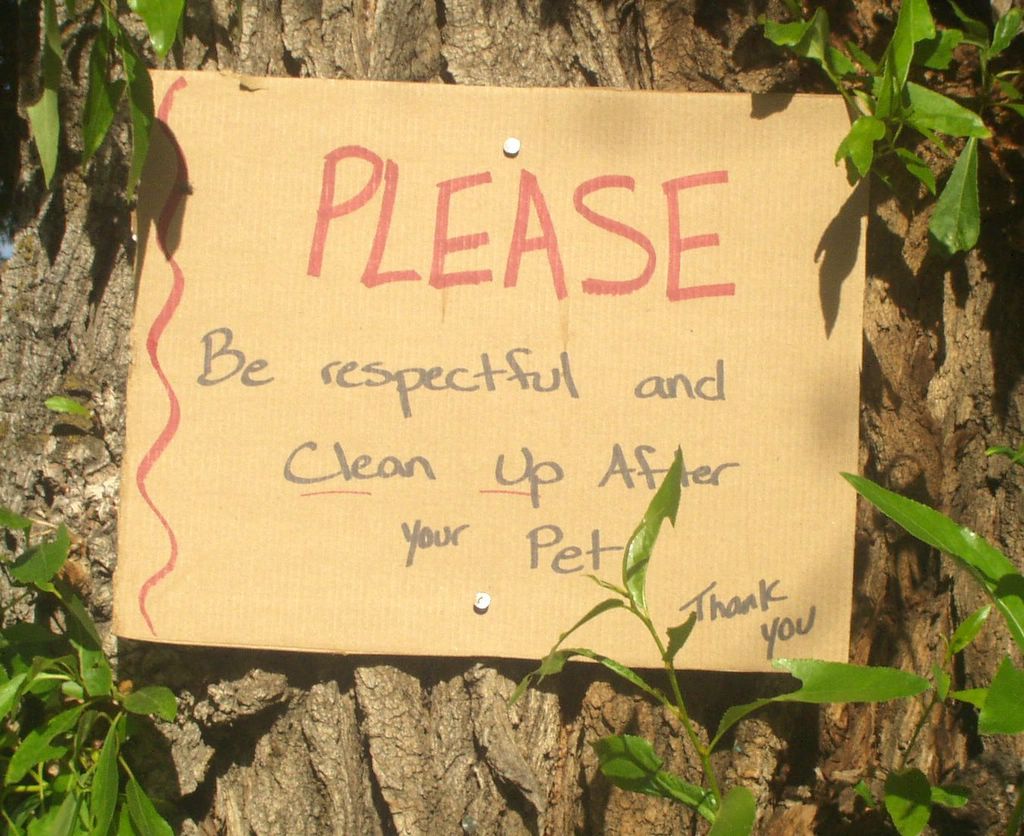 PLEASE
Be respectful and
Clean Up After
your Pet
Thank
you